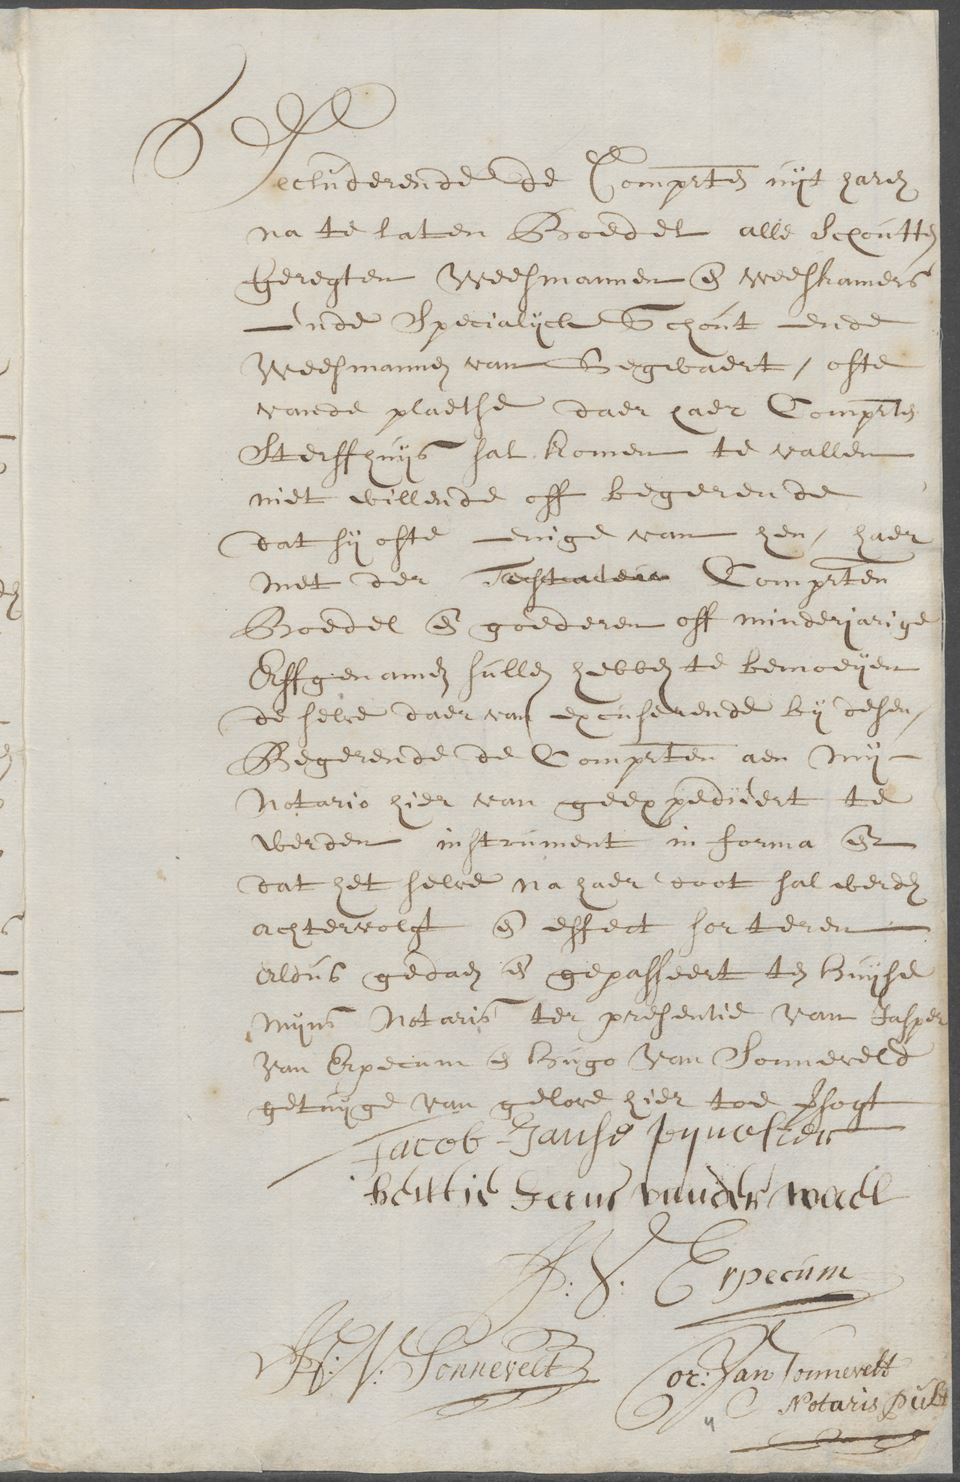 Secluderende de Comprten uijt haren
na te laten Boedel alle Schoutten
geregten Weesmannen en weeskamers
ende Specialijck Schout ende
Weesmannen van Segwaert / ofte
vande plaetse daer haer Comprten
Sterffhuijs sal komen te vallen
niet willende off begerende
dat sij ofte enige van hen / haer
met der Comprten
Boedel en goederen off minderjarige
Erffgenamen sullen hebben te bemoeijen
de selve daer van excuserende bij desen /
Begerende de Comprten aen mij
Notario hier van geexpedieert te
werden instrument in forma en
dat het selve na haer doot sal werden
achtervolgt en effect sorteren
Aldus gedaen en gepasseert ten huijse
mijns Notaris ter presentie van Jasper
van Erpecum en Hugo van Sonneveld
getuijge van gelove hier toe
Jacob Janse
van der
J: V: Erpecum
H: V: Sonnevelt
Cor: Van Sonnevelt
Notaris Publ